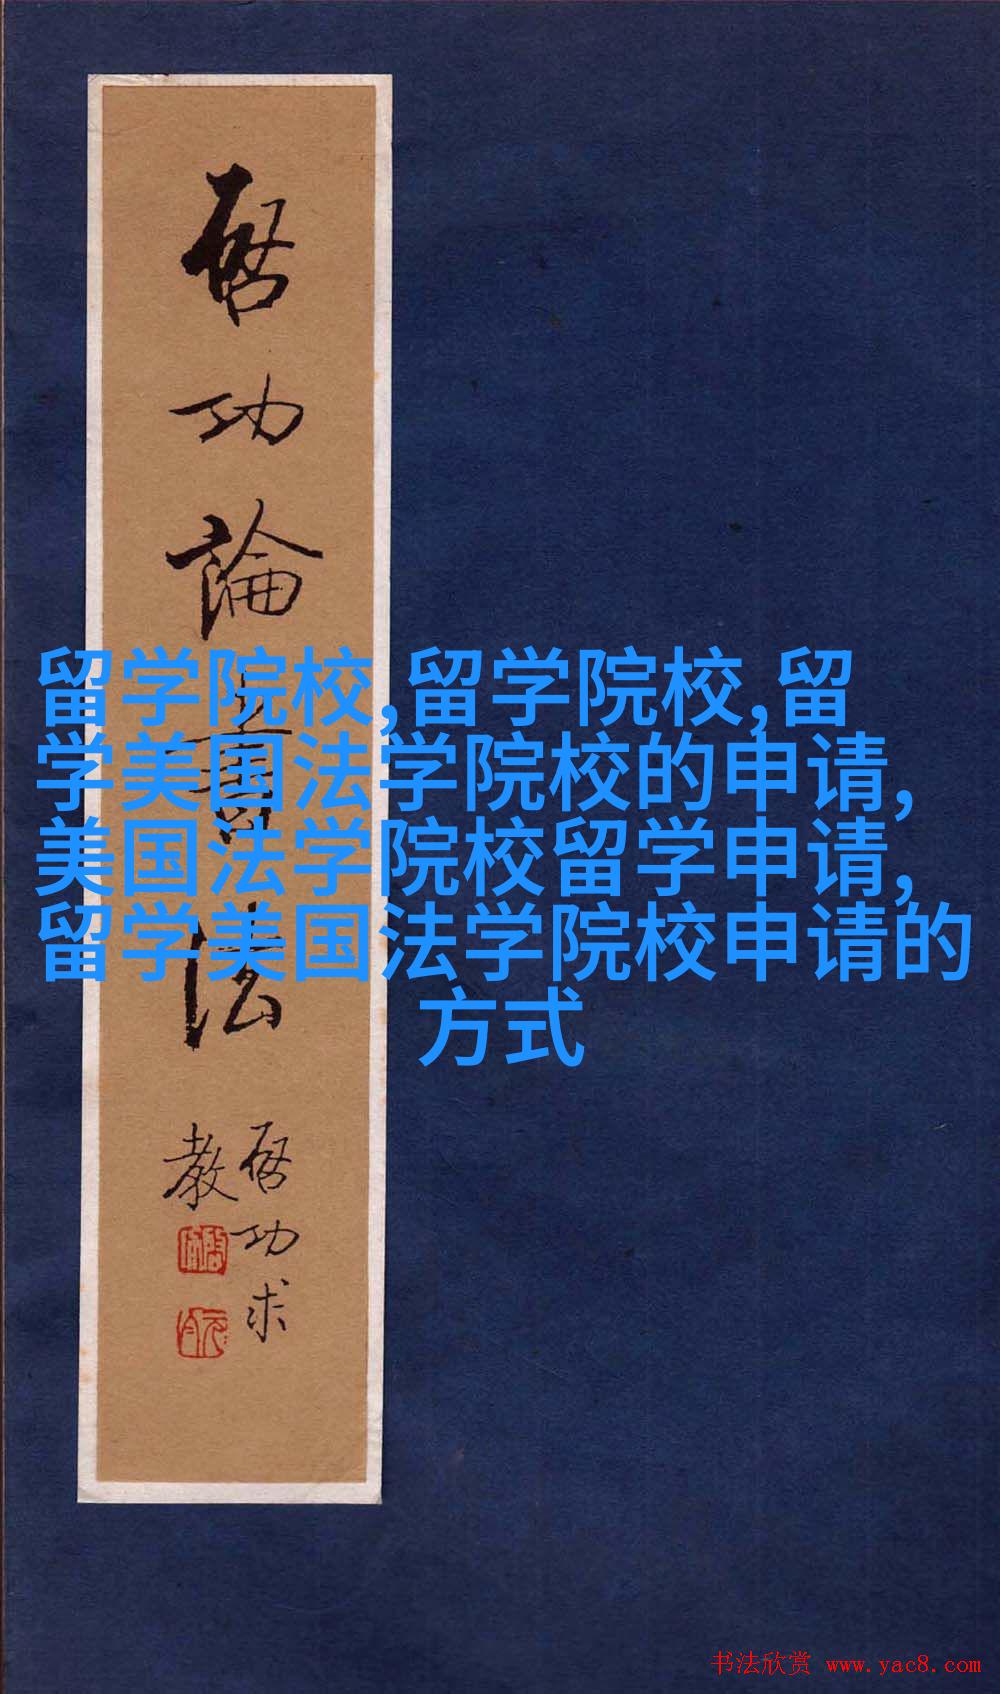 启功論書法
启功求
教
留学院校,留学院校,留
学美国法学院校的申请,
美国法学院校留学申请,
留学美国法学院校申请的
方式
书法欣赏 www.yac8.com